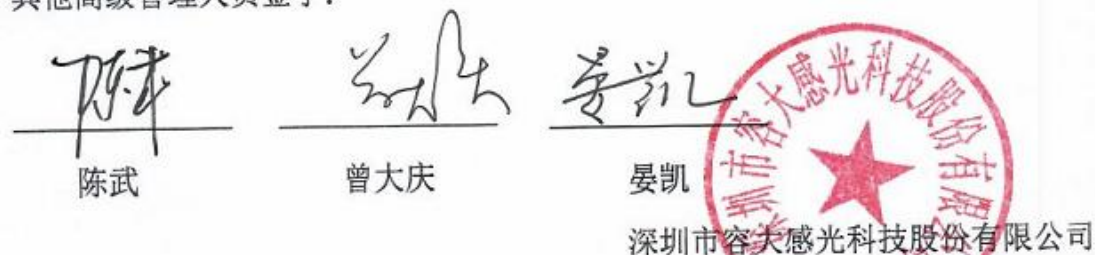 其他高级管理人员签字：
陈武 曾大庆 晏凯
陈武 曾大庆 晏凯
深圳市容大感光科技股份有限公司
深圳市容大感光科技股份有限公